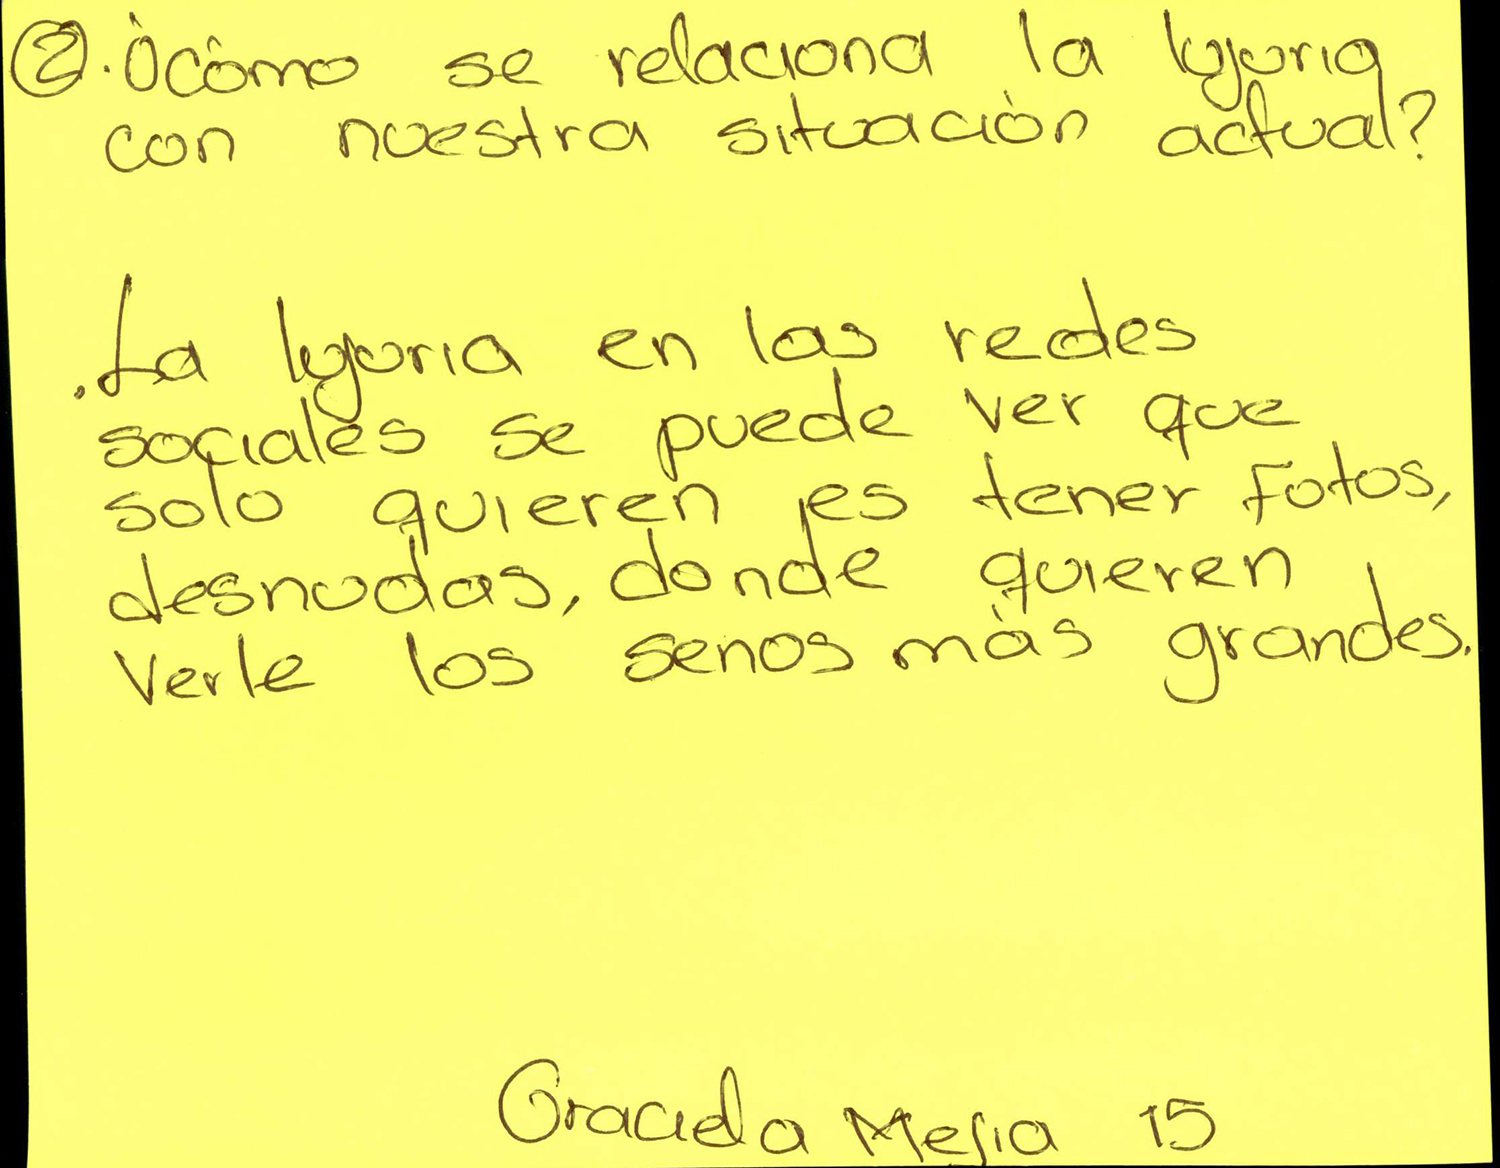 ②. ¿cómo se relaciona la lujuria
con nuestra situación actual?
.La lujuria en las redes
sociales se puede ver que
solo quieren es tener Fotos,
desnudas, donde quieren
verle los senos más grandes.
Graciela Mejia 15